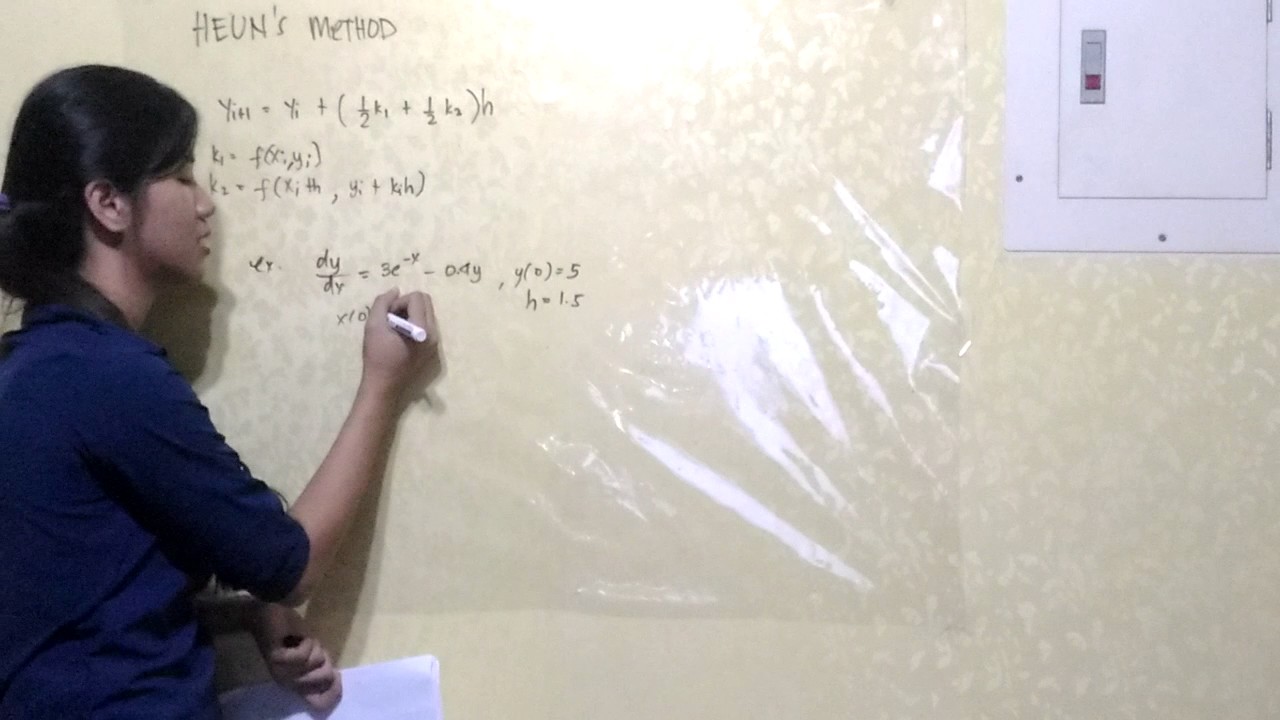 HEUN'S METHOD
yi+1 = yi + (½k1 + ½k2)h
k1 = f(xi,yi)
k2 = f(xi+h, yi + k1h)
ex. dy/dx = 3e^-x - 0.4y, y(0)=5
h=1.5
x(0)